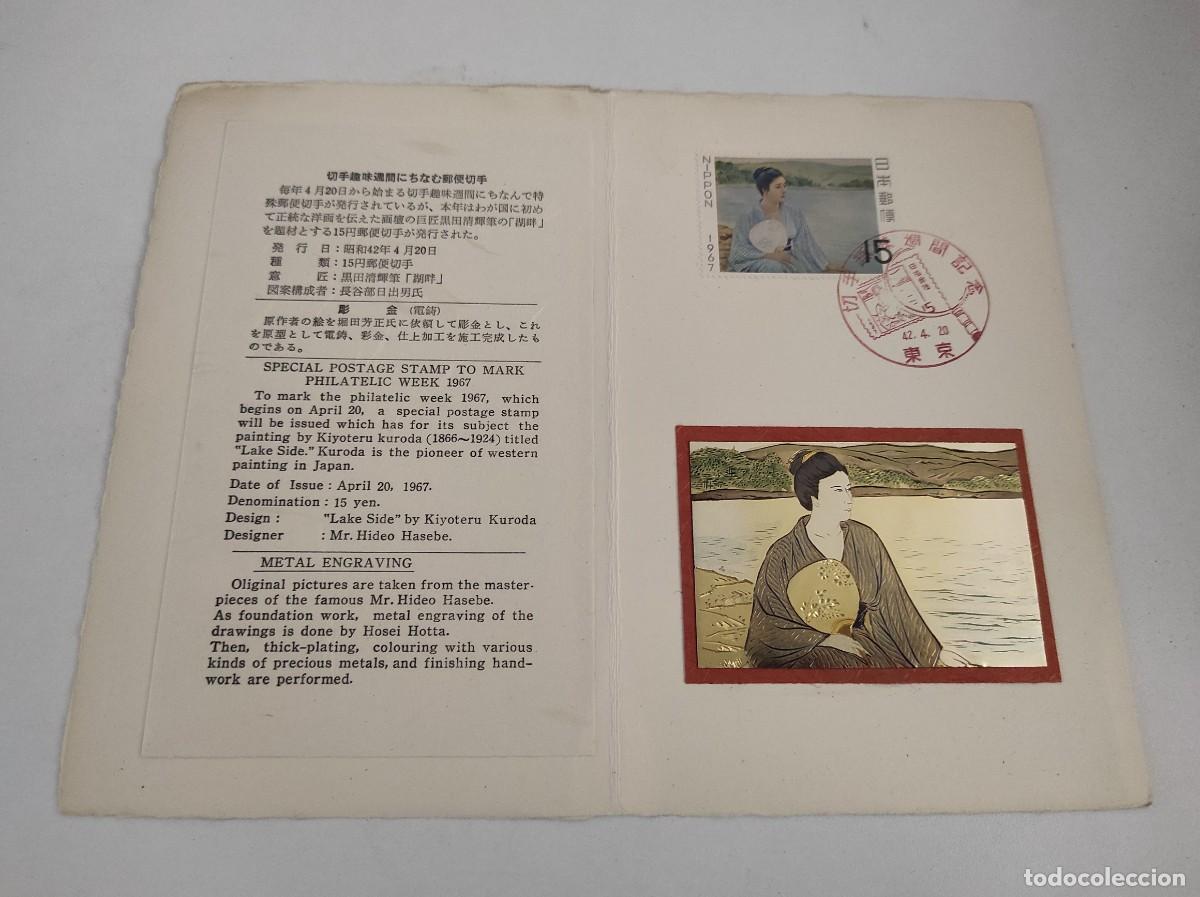 切手趣味週間にちなむ郵便切手
毎年4月20日から始まる切手趣味週間にちなんで特
殊郵便切手が発行されているが、本年はわが国に初め
て正統な洋画を伝えた画壇の巨匠黒田清輝筆の「湖畔」
を題材とする15円郵便切手が発行された。
発行日:昭和42年4月20日
種類:15円郵便切手
意匠:黒田清輝筆「湖畔」
図案構成者:長谷部日出男氏
彫金(電鋳)
原作者の絵を堀田芳正氏に依頼して彫金とし、これ
を原型として電鋳、彩金、仕上加工を施工完成したも
のである。
SPECIAL POSTAGE STAMP TO MARK
PHILATELIC WEEK 1967
To mark the philatelic week 1967, which
begins on April 20, a special postage stamp
will be issued which has for its subject the
painting by Kiyoteru kuroda (1866~1924) titled
"Lake Side." Kuroda is the pioneer of western
painting in Japan.
Date of Issue : April 20, 1967.
Denomination : 15 yen.
Design : "Lake Side" by Kiyoteru Kuroda
Designer : Mr. Hideo Hasebe.
METAL ENGRAVING
Oliginal pictures are taken from the master-
pieces of the famous Mr. Hideo Hasebe.
As foundation work, metal engraving of the
drawings is done by Hosei Hotta.
Then, thick-plating, colouring with various
kinds of precious metals, and finishing hand-
work are performed.
NIPPON 1967
日本郵便
15
切手趣味週間記念
42.4.20
東京
todocoleccion